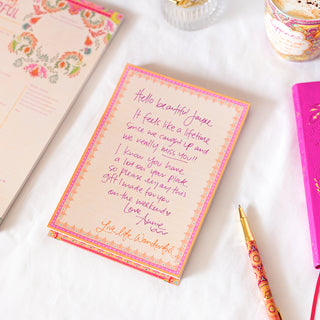 Hello beautiful Janene
It feels like a lifetime
since we caught up and
we really miss you!!
I know you have
a lot on your plate
so please enjoy this
gift I made for you
on the weekend
Love Annie
Live Life Wonderful